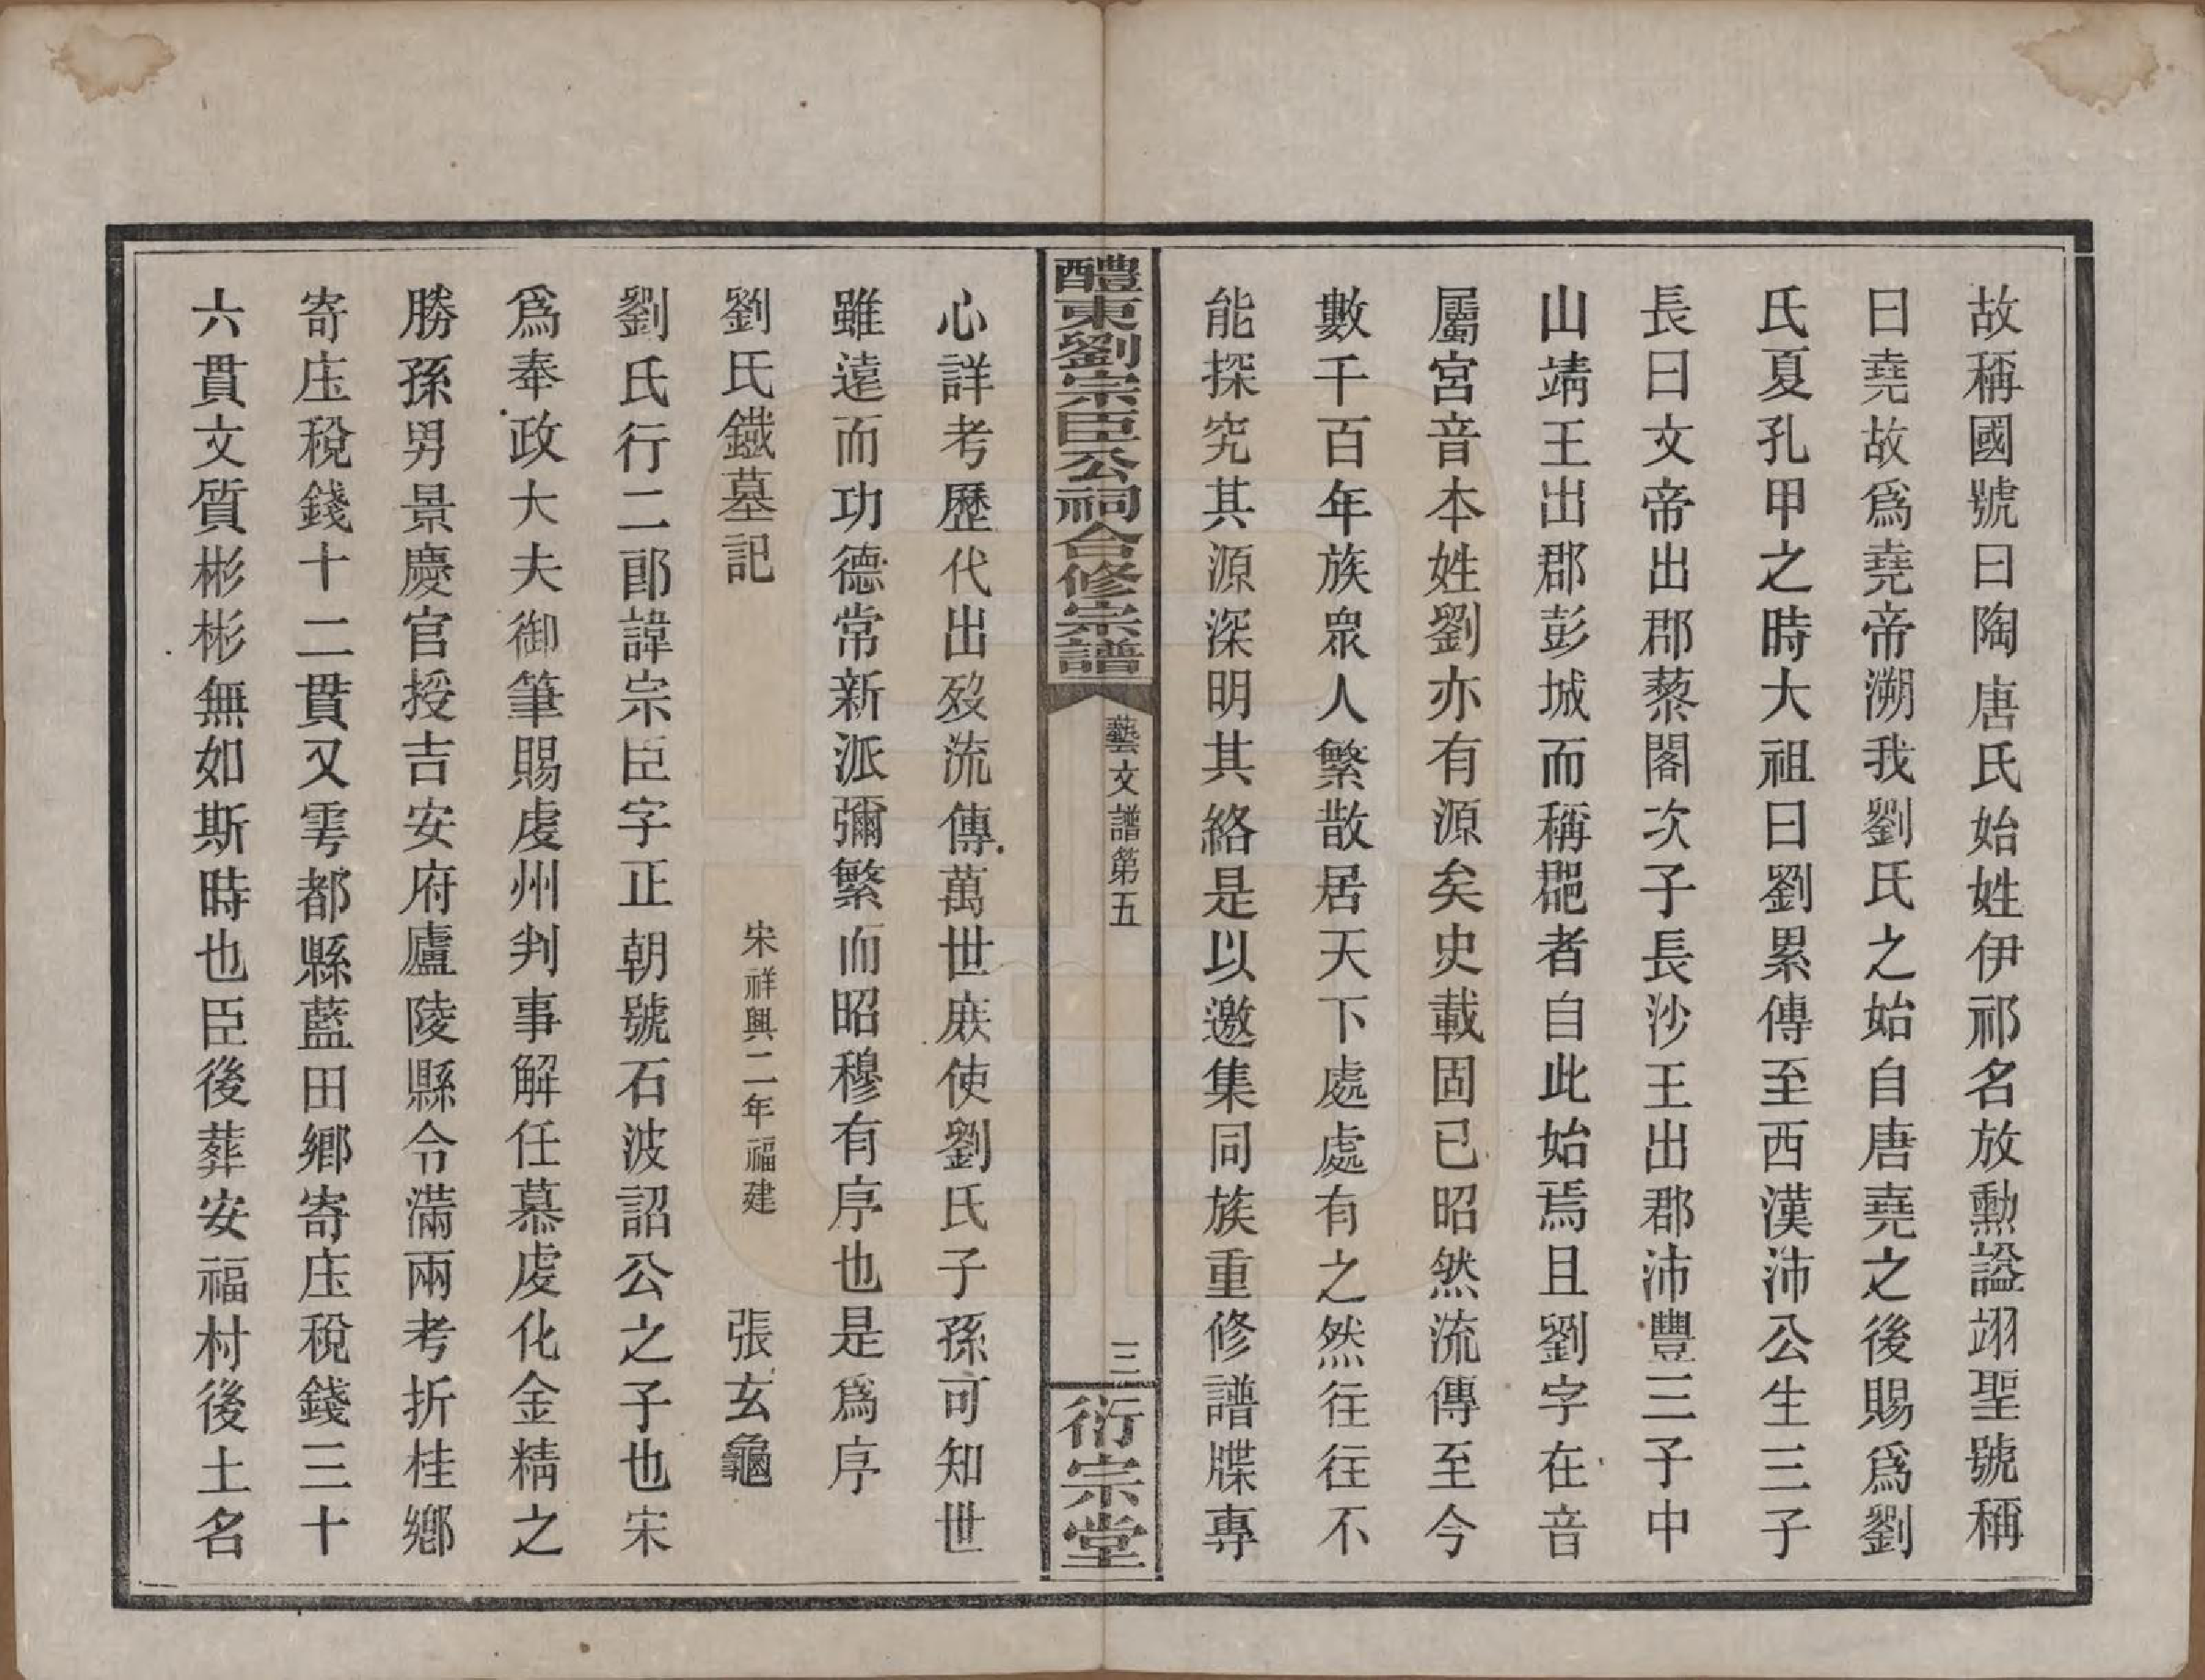 故稱國號曰陶唐氏始姓伊祁名放勳諡翊聖號稱
曰堯故爲堯帝溯我劉氏之始自唐堯之後賜爲劉
氏夏孔甲之時大祖曰劉累傳至西漢沛公生三子
長曰文帝出郡藜閣次子長沙王出郡沛豐三子中
山靖王出郡彭城而稱郡者自此始焉且劉字在音
屬宮音本姓劉亦有源矣史載固已昭然流傳至今
數千百年族衆人繁散居天下處處有之然往往不
能探究其源深明其絡是以邀集同族重修譜牒專
醴東劉宗臣公祠合修宗譜
藝文譜第五
三
衍宗堂
心詳考歷代出歿流傳萬世庻使劉氏子孫可知世
雖遠而功德常新派彌繁而昭穆有序也是爲序
劉氏鐵墓記 宋祥興二年福建 張玄龜
劉氏行二郎諱宗臣字正朝號石波詔公之子也宋
爲奉政大夫御筆賜虔州判事解任慕虔化金精之
勝孫男景慶官授吉安府廬陵縣令滿兩考折桂鄉
寄庄稅錢十二貫又雩都縣藍田鄉寄庄稅錢三十
六貫文質彬彬無如斯時也臣後葬安福村後土名